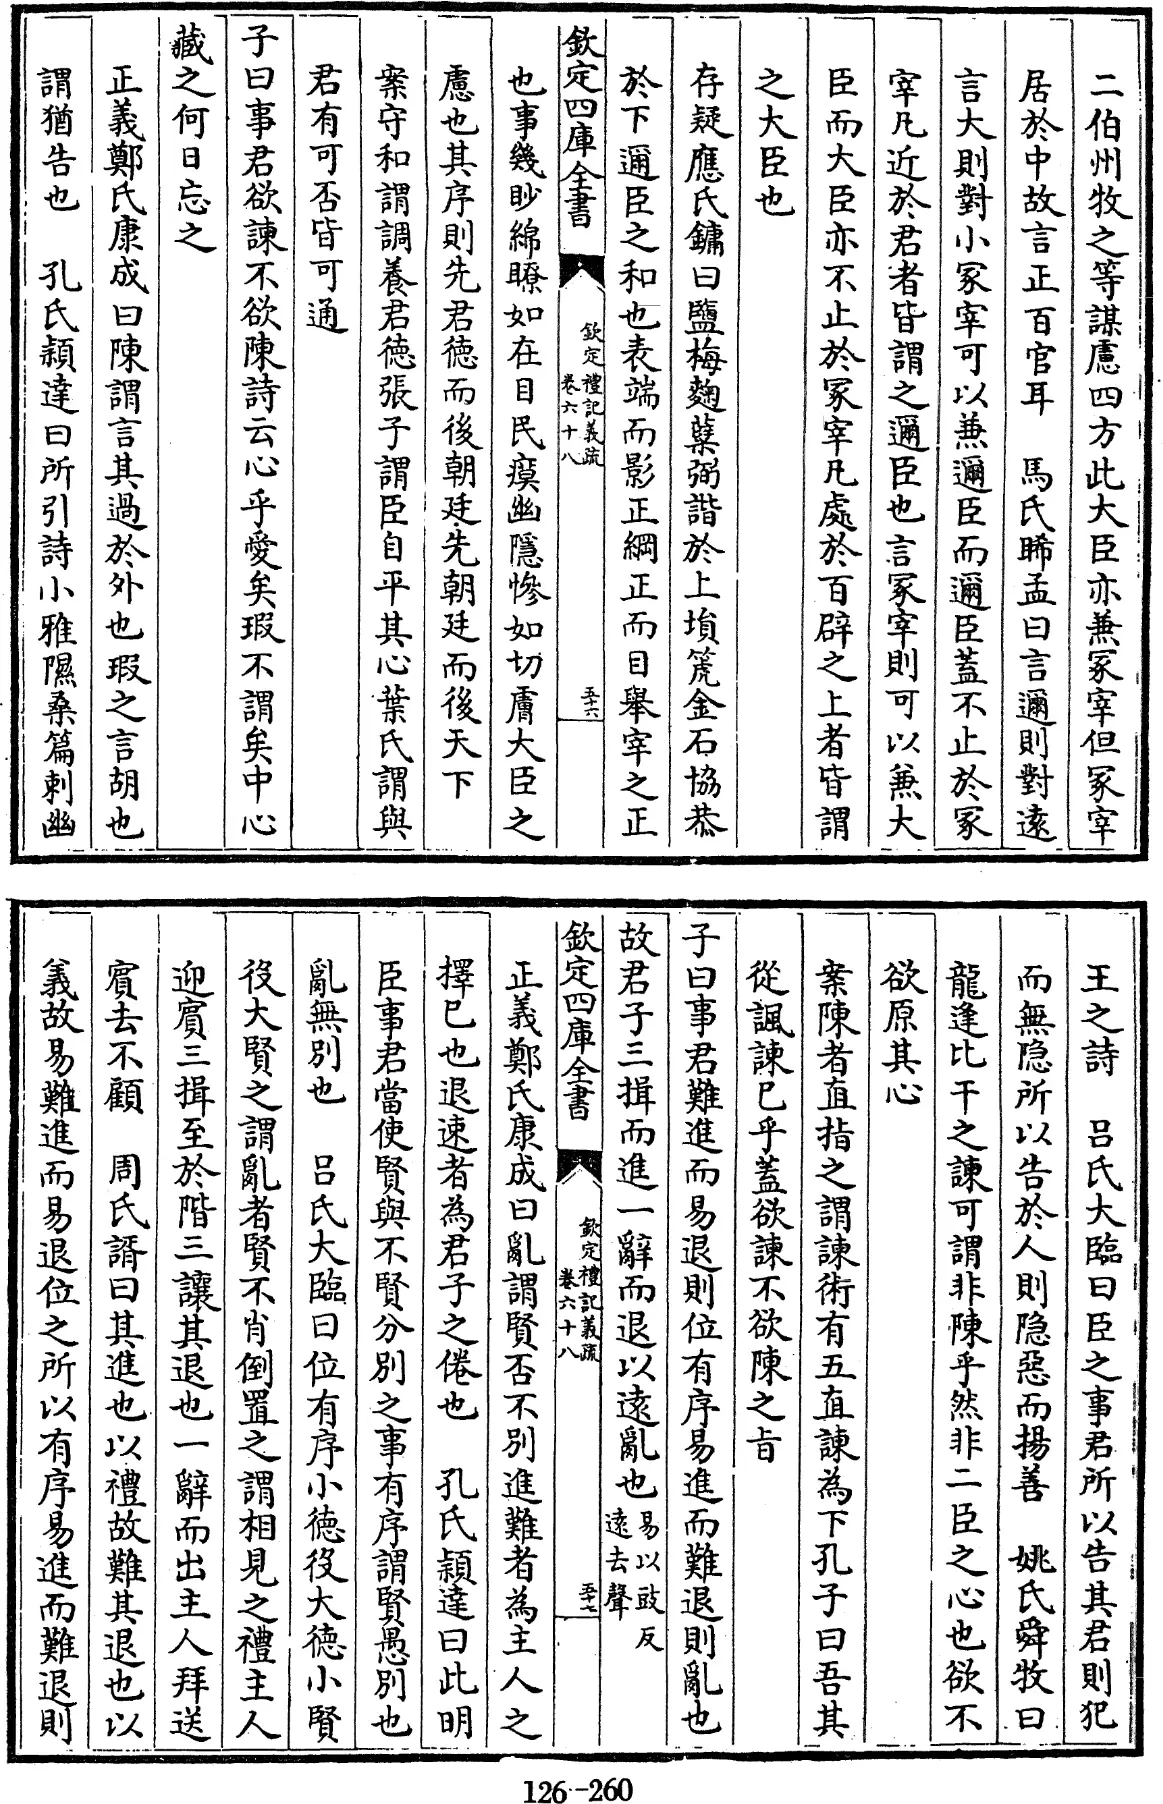 二伯州牧之等謀慮四方此大臣亦兼冢宰但冢宰
居於中故言正百官耳　馬氏晞孟曰言邇則對遠
言大則對小冢宰可以兼邇臣而邇臣蓋不止於冢
宰凡近於君者皆謂之邇臣也言冢宰則可以兼大
臣而大臣亦不止於冢宰凡處於百辟之上者皆謂
之大臣也
存疑應氏鏞曰鹽梅麴糵弼諧於上塤箎金石協恭
於下邇臣之和也表端而影正綱正而目舉宰之正
欽定四庫全書
欽定禮記義疏
卷六十八
五十六
也事幾眇綿瞭如在目民瘼幽隱慘如切膚大臣之
慮也其序則先君德而後朝廷先朝廷而後天下
案守和謂調養君德張子謂臣自平其心葉氏謂與
君有可否皆可通
子曰事君欲諫不欲陳詩云心乎愛矣瑕不謂矣中心
藏之何日忘之
正義鄭氏康成曰陳謂言其過於外也瑕之言胡也
謂猶告也　孔氏穎達曰所引詩小雅隰桑篇刺幽
王之詩　呂氏大臨曰臣之事君所以告其君則犯
而無隐所以告於人則隐惡而揚善　姚氏舜牧曰
龍逢比干之諫可謂非陳乎然非二臣之心也欲不
欲原其心
案陳者直指之謂諫術有五直諫為下孔子曰吾其
從諷諫已乎蓋欲諫不欲陳之旨
子曰事君難進而易退則位有序易進而難退則亂也
故君子三揖而進一辭而退以遠亂也易以豉反
遠去聲
欽定四庫全書
欽定禮記義疏
卷六十八
五十七
正義鄭氏康成曰亂謂賢否不別進難者為主人之
擇已也退速者為君子之倦也　孔氏穎達曰此明
臣事君當使賢與不賢分別之事有序謂賢愚別也
亂無別也　呂氏大臨曰位有序小德役大德小賢
役大賢之謂亂者賢不肖倒置之謂相見之禮主人
迎賓三揖至於階三讓其退也一辭而出主人拜送
賓去不顧　周氏諝曰其進也以禮故難其退也以
義故易難進而易退位之所以有序易進而難退則
126-260